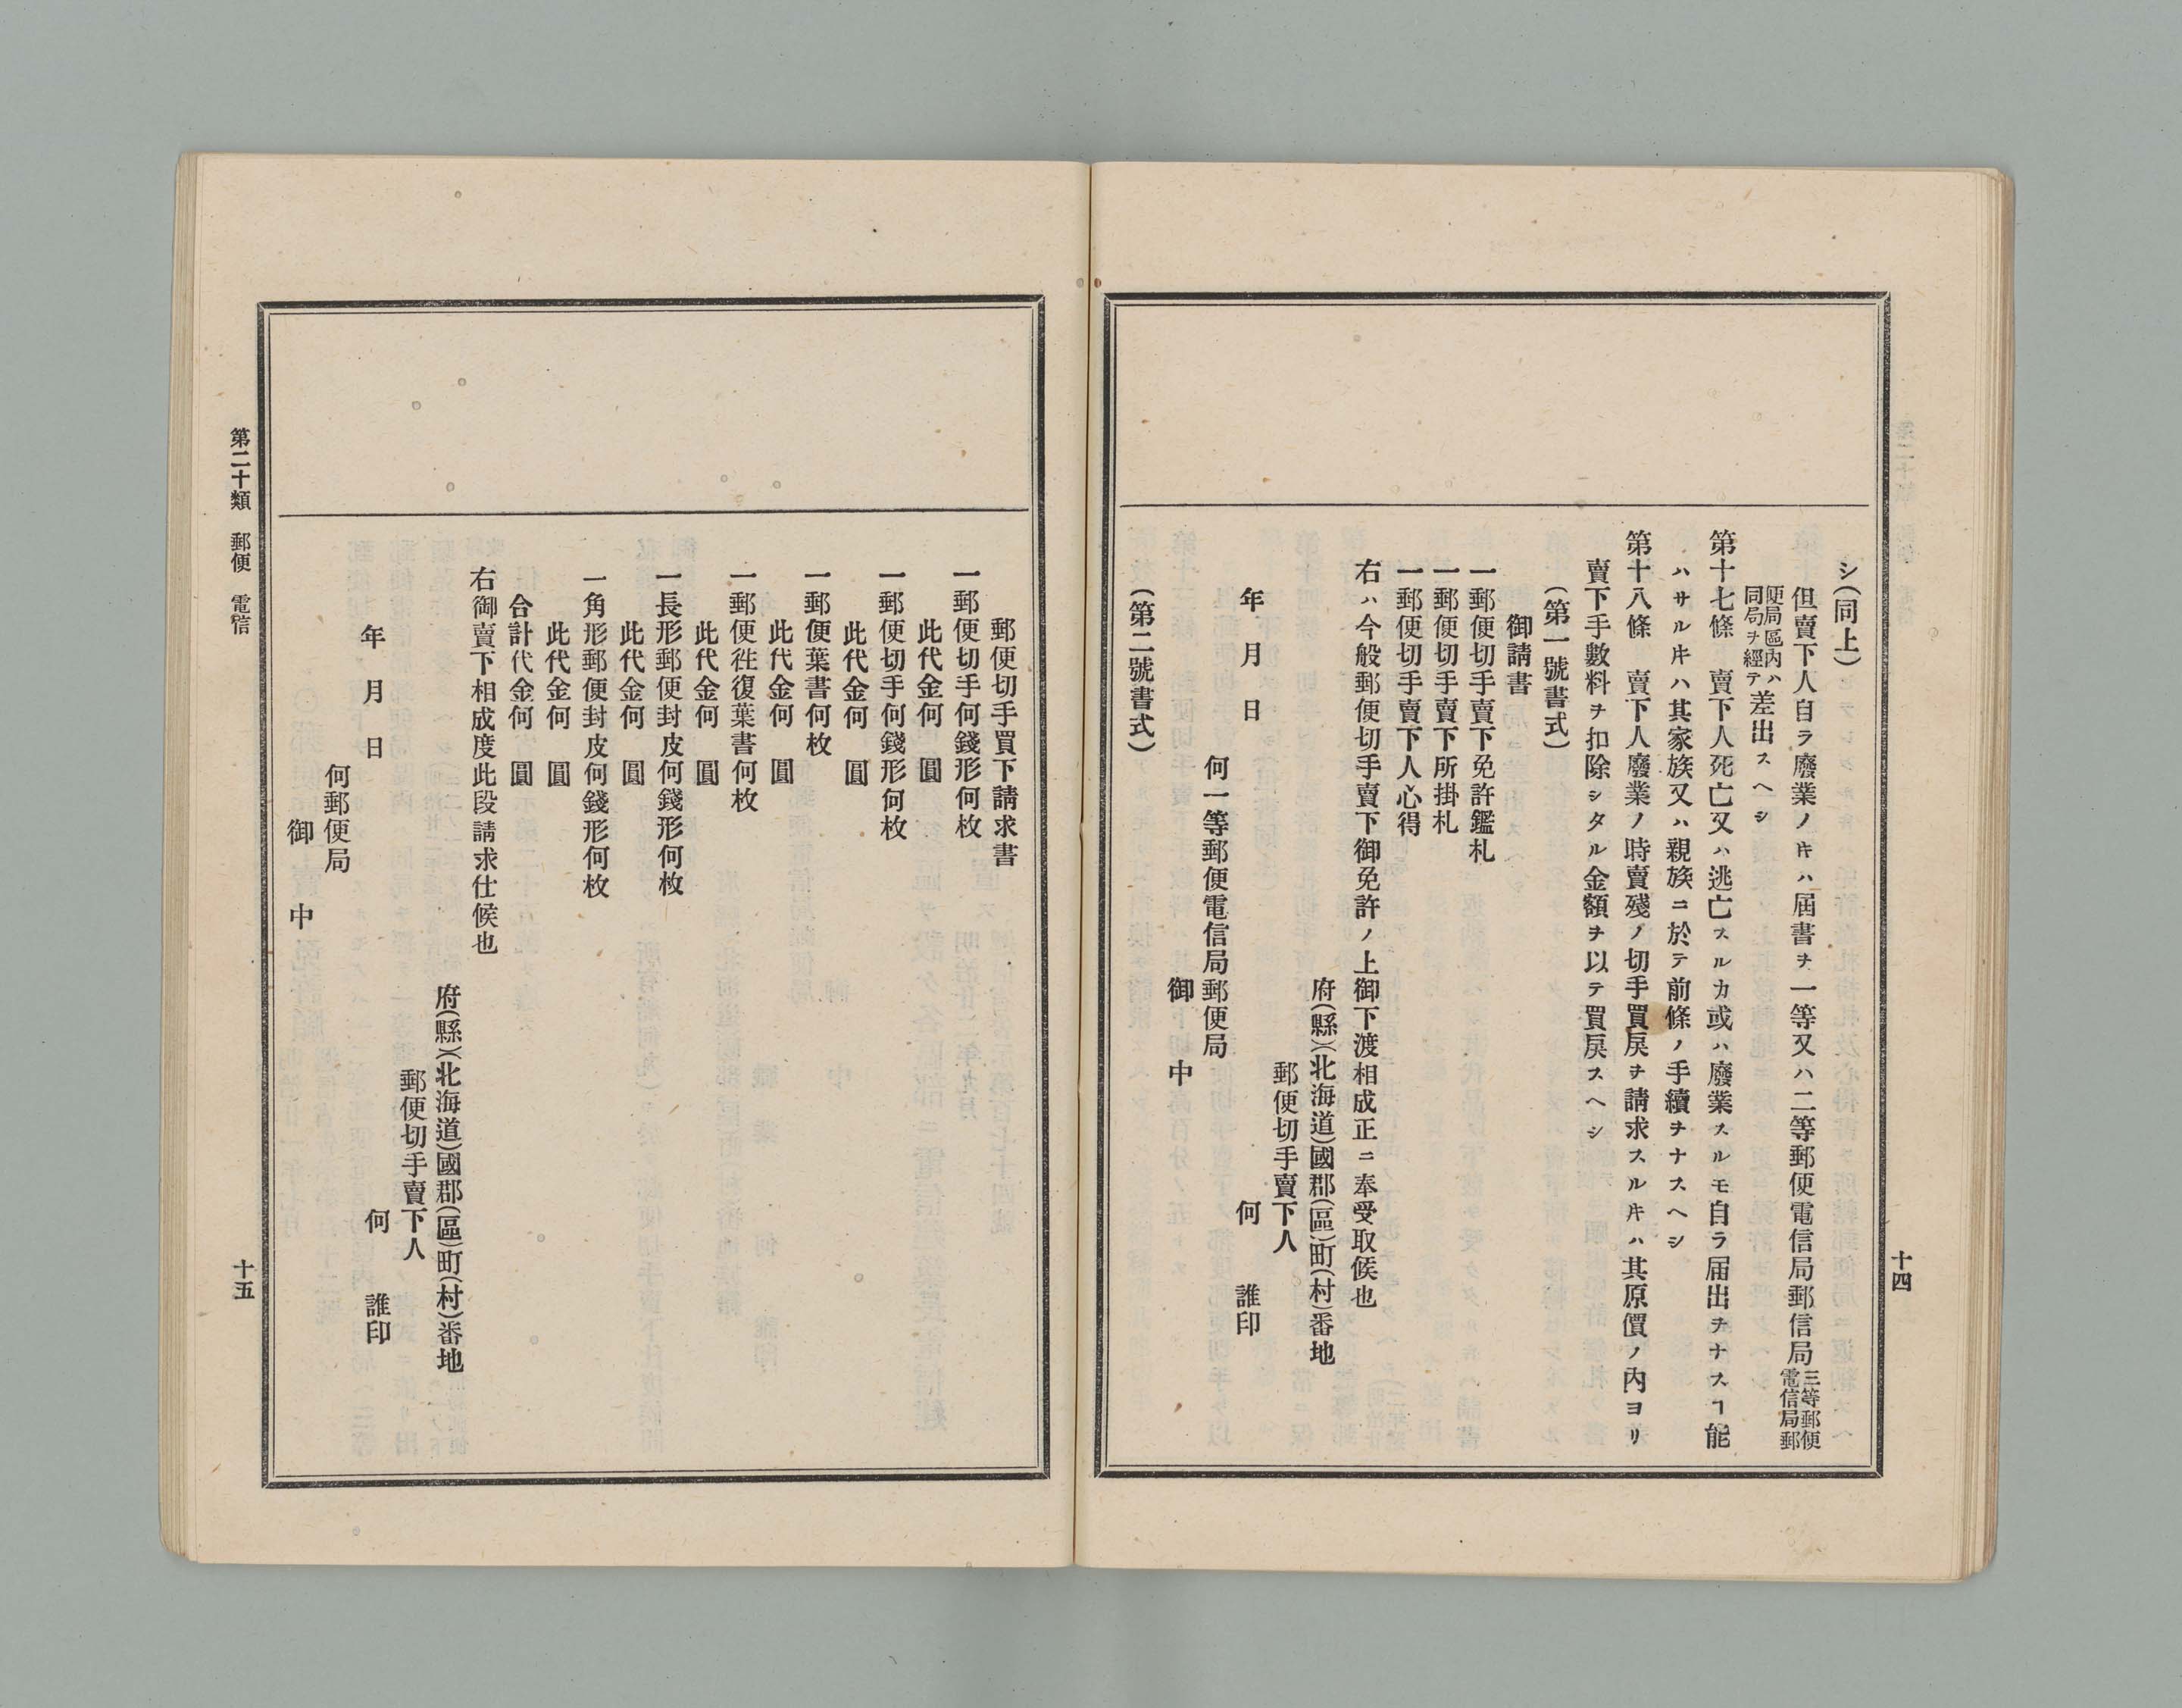 シ(同上)
但賣下人自ラ廢業ノ𪜈ハ屆書ヲ一等又ハ二等郵便電信局郵信局三等郵便電信局郵
便局區内ハ同局ヲ經テ差出スヘシ
第十七條　賣下人死亡又ハ逃亡スルカ或ハ廢業スルモ自ラ届出ヲナスヿ能
ハサル𪜈ハ其家族又ハ親族ニ於テ前條ノ手續ヲナスヘシ
第十八條　賣下人廢業ノ時賣殘ノ切手買戻ヲ請求スル𪜈ハ其原價ノ内ヨリ
賣下手數料ヲ扣除シタル金額ヲ以テ買戻スヘシ
(第一號書式)
御請書
一郵便切手賣下免許鑑札
一郵便切手賣下所掛札
一郵便切手賣下人心得
右ハ今般郵便切手賣下御免許ノ上御下渡相成正ニ奉受取候也
府(縣)(北海道)國郡(區)町(村)番地
郵便切手賣下人
年　月　日　何　誰印
何一等郵便電信局郵便局
御　中
(第二號書式)
十四
郵便切手買下請求書
一郵便切手何錢形何枚
此代金何　圓
一郵便切手何錢形何枚
此代金何　圓
一郵便葉書何枚
此代金何　圓
一郵便徃復葉書何枚
此代金何　圓
一長形郵便封皮何錢形何枚
此代金何　圓
一角形郵便封皮何錢形何枚
此代金何　圓
合計代金何　圓
右御賣下相成度此段請求仕候也
府(縣)(北海道)國郡(區)町(村)番地
郵便切手賣下人
年　月　日　何　誰印
何郵便局
御　中
第二十類　郵便　電信
十五